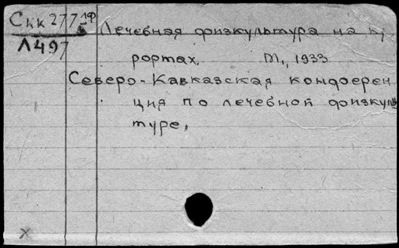 Скк 277 лф
Л497
Лечебная физкультура на ку
рортах. М., 1933
Северо-Кавказская конферен
ция по лечебной физкуль
туре,
x